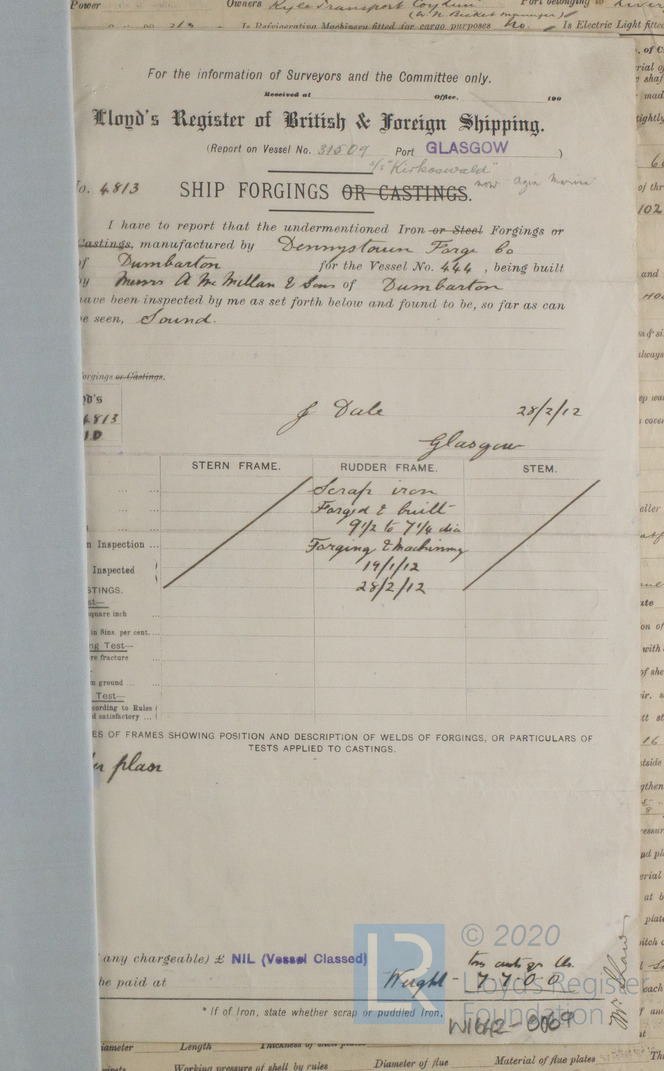 Power
Owners Kyle Transport Coy
Port belonging to
Is Refrigeration Machinery fitted for cargo purposes No. Is Electric Light fitted
For the information of Surveyors and the Committee only.
Received at Office, 190
Lloyd's Register of British & Foreign Shipping.
(Report on Vessel No. 31509 Port GLASGOW )
s/s "Kirkoswald"
now Agia Marina
No. 4813 SHIP FORGINGS OR CASTINGS.
I have to report that the undermentioned Iron or Steel Forgings or
Castings, manufactured by Dennystown Forge Co
of Dumbarton for the Vessel No. 444 , being built
by Messrs A McMillan & Sons of Dumbarton
have been inspected by me as set forth below and found to be, so far as can
be seen, Sound.
orgings or Castings.
yd's
4813
J.D
J Dale 28/2/12
Glasgow
STERN FRAME. RUDDER FRAME. STEM.
Scrap iron
Forged & built
9 1/2 to 7 1/4 dia
n Inspection ... Forging & Machining
Inspected 19/1/12
STINGS. 28/2/12
st—
square inch
in 8ins. per cent. ...
ng Test—
re fracture ...
m ground ... ...
Test—
cording to Rules
d satisfactory ...
ES OF FRAMES SHOWING POSITION AND DESCRIPTION OF WELDS OF FORGINGS, OR PARTICULARS OF
TESTS APPLIED TO CASTINGS.
er plan
any chargeable) £ NIL (Vessel Classed)
tons cwts qrs lbs.
be paid at Weight - 7 7 0 0
* If of Iron, state whether scrap or puddled Iron.
W1642-0069
LR
© 2020
Lloyd's Register
Foundation
diameter Length Thickness of shell plates
Working pressure of shell by rules Diameter of flue Material of flue plates